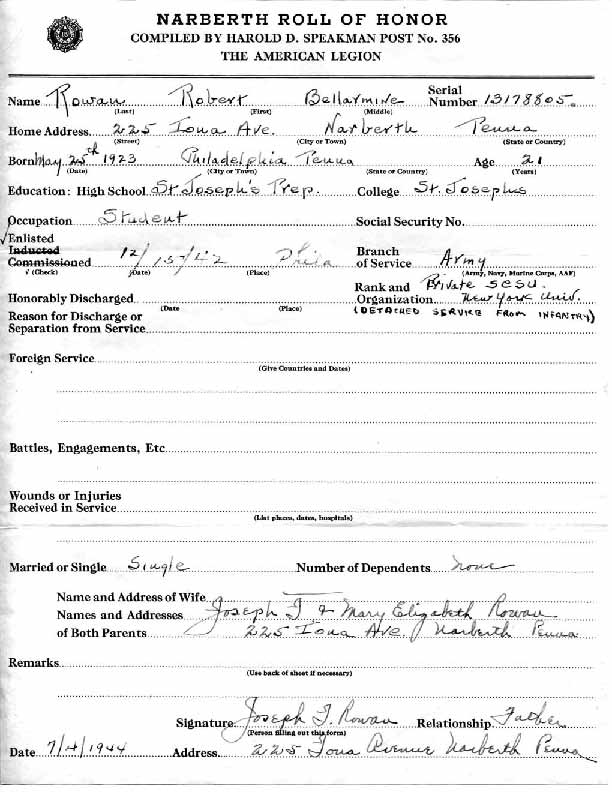 NARBERTH ROLL OF HONOR
COMPILED BY HAROLD D. SPEAKMAN POST No. 356
THE AMERICAN LEGION
Name Rowan Robert Bellarmine Serial Number 13178805.
(Last) (First) (Middle)
Home Address 225 Iona Ave. Narberth Penna
(Street) (City or Town) (State or Country)
Born May 25th 1923 Philadelphia Penna Age 21
(Date) (City or Town) (State or Country) (Years)
Education: High School St Joseph's Prep. College St. Josephs
Occupation Student Social Security No.
√Enlisted
Inducted
Commissioned 12/15/42 Phila Branch of Service Army
√ (Check) (Date) (Place) (Army, Navy, Marine Corps, AAF)
Rank and Organization Private SCSU.
New York Univ.
Honorably Discharged
(Date (Place) (DETACHED SERVICE FROM INFANTRY)
Reason for Discharge or
Separation from Service
Foreign Service
(Give Countries and Dates)
Battles, Engagements, Etc
Wounds or Injuries
Received in Service
(List places, dates, hospitals)
Married or Single Single Number of Dependents none
Name and Address of Wife
Names and Addresses Joseph J & Mary Elizabeth Rowan
of Both Parents 225 Iona Ave. Narberth Penna
Remarks
(Use back of sheet if necessary)
Signature Joseph J. Rowan Relationship Father
(Person filling out this form)
Date 7/4/1944 Address 225 Iona Avenue Narberth Penna